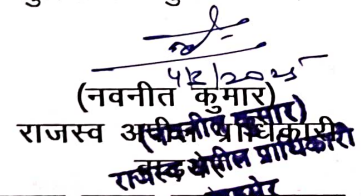 4/2/2025
(नवनीत कुमार)
राजस्व अपील प्राधिकारी
(नवनीत कुमार)
राजस्व अपील प्राधिकारी